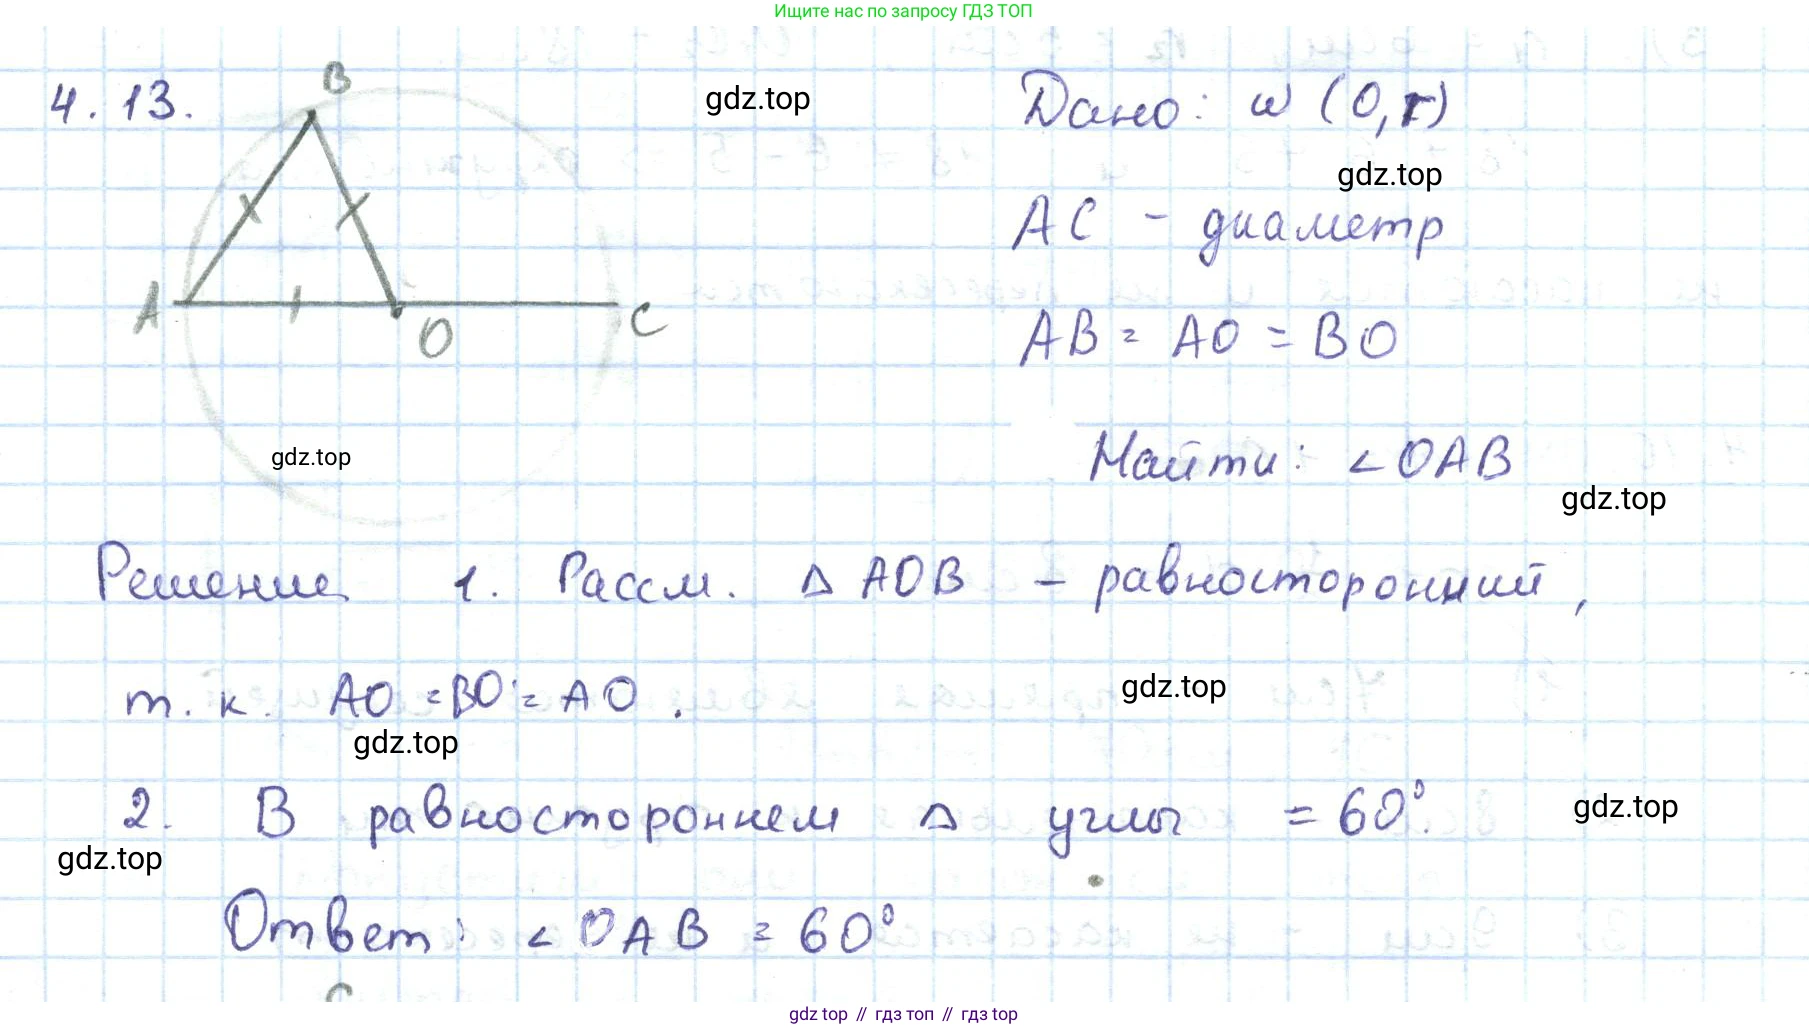 Ищите нас по запросу ГДЗ ТОП
4.13.
B
gdz.top
Дано: ω (O,r)
gdz.top
AC - диаметр
A
O
C
AB = AO = BO
gdz.top
Найти: ∠OAB
gdz.top
Решение 1. Рассм. Δ AOB – равносторонний,
т. к. AO = BO = AO.
gdz.top
gdz.top
2. В равностороннем Δ углы = 60°.
gdz.top
gdz.top
Ответ: ∠OAB = 60°
gdz.top // гдз топ // гдз top